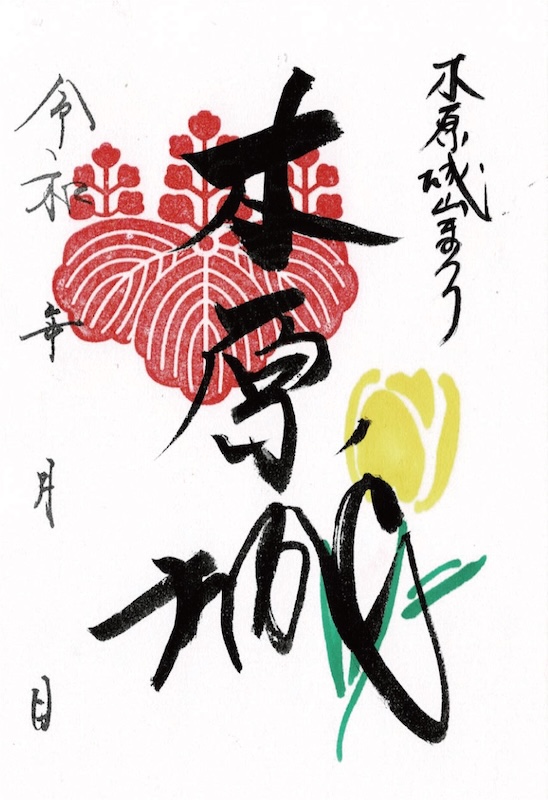 木原城山まつり
木原城
令和 年 月 日